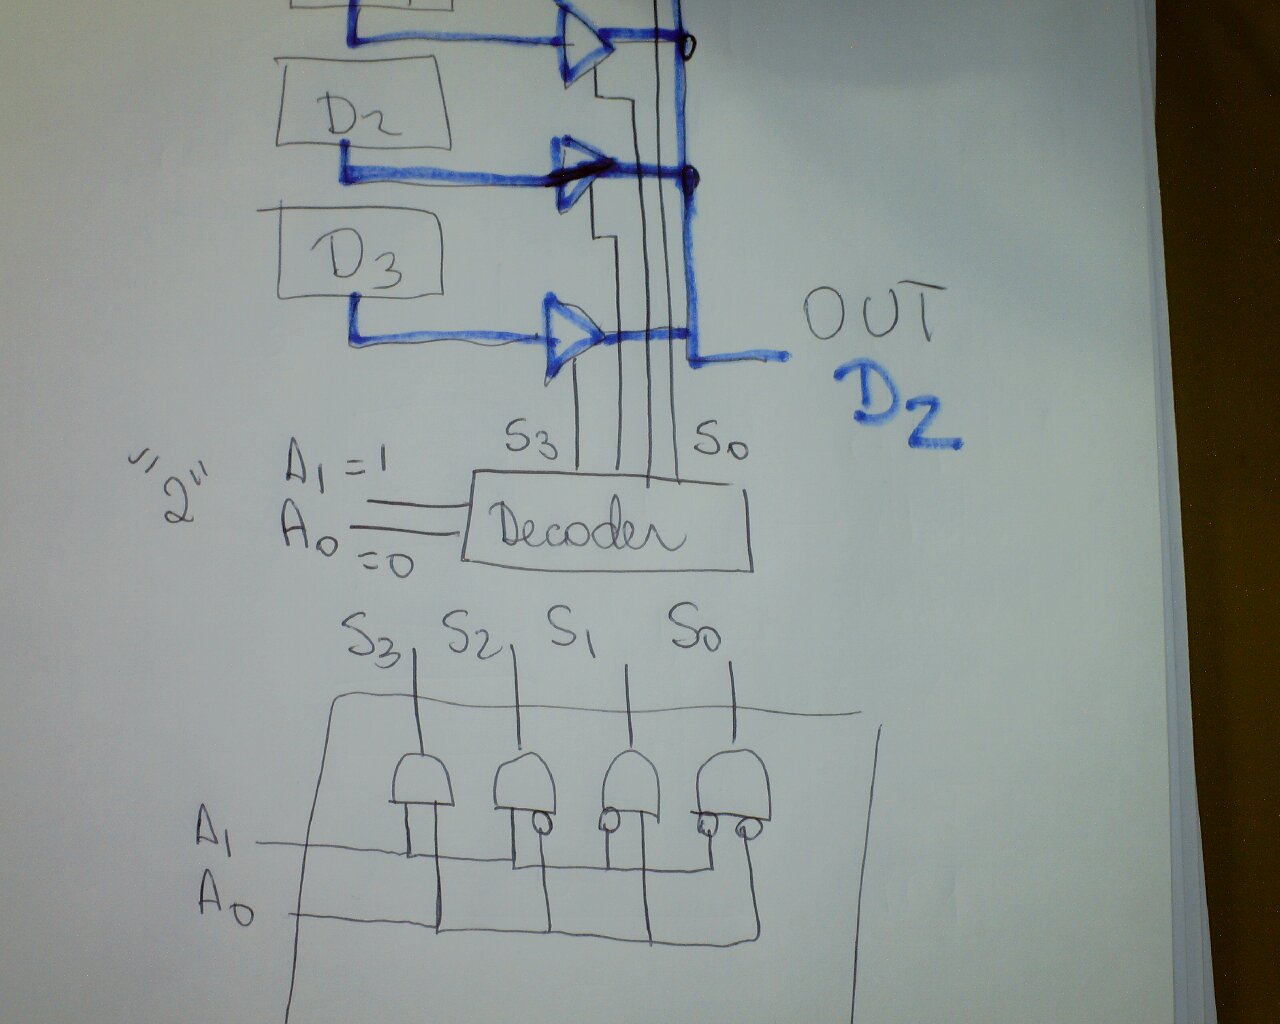 D2
D3
OUT
D2
S3 S0
"2"
A1 = 1
A0 = 0
Decoder
S3 S2 S1 S0
A1
A0